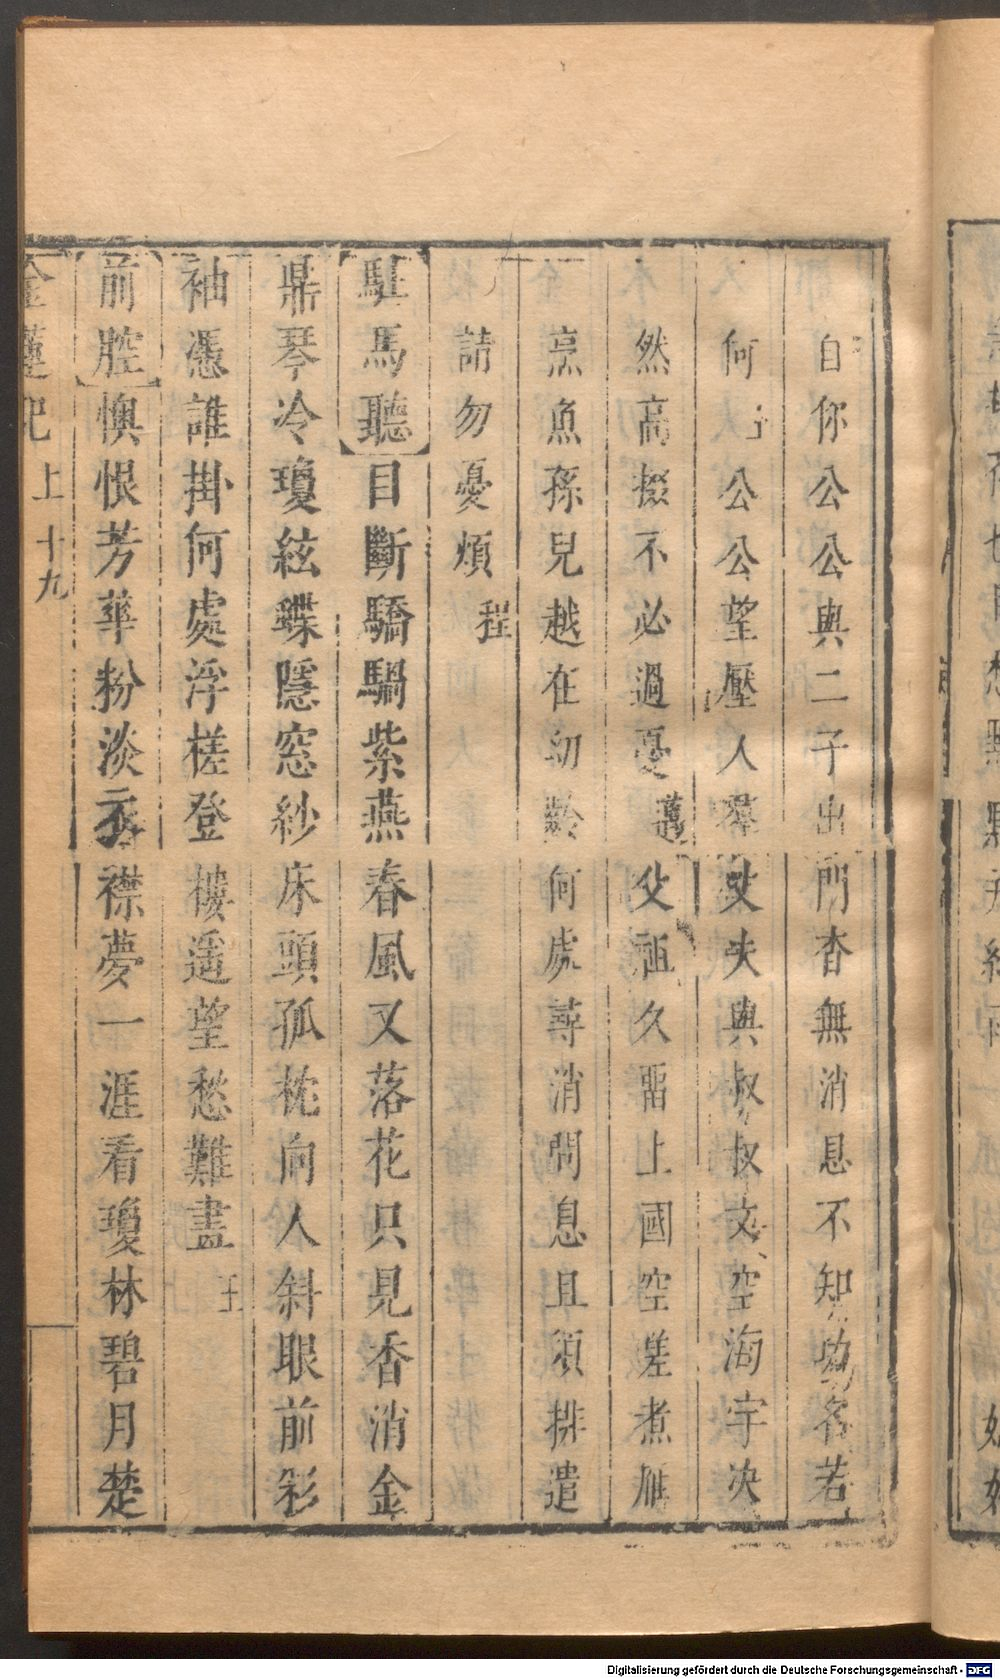 自你公公與二子出門杳無消息不知功名若
何公公望壓人羣丈夫與叔叔文空海宇决
然高掇不必過憂䕫父祖久畱上國空遲煮雁
烹魚孫兒越在幼齡何處尋消問息且須排遣
請勿憂煩程
【駐馬聽】目斷驕驄紫燕春風又落花只見香消金
鼎琴冷瓊絃蝶隱窓紗床頭孤枕向人斜眼前彩
袖憑誰掛何處浮槎登樓遥望愁難盡五
【前腔】懊恨芳華粉淡衣襟夢一涯看瓊林碧月楚
金蓮記 上 十九
Digitalisierung gefördert durch die Deutsche Forschungsgemeinschaft - DFG